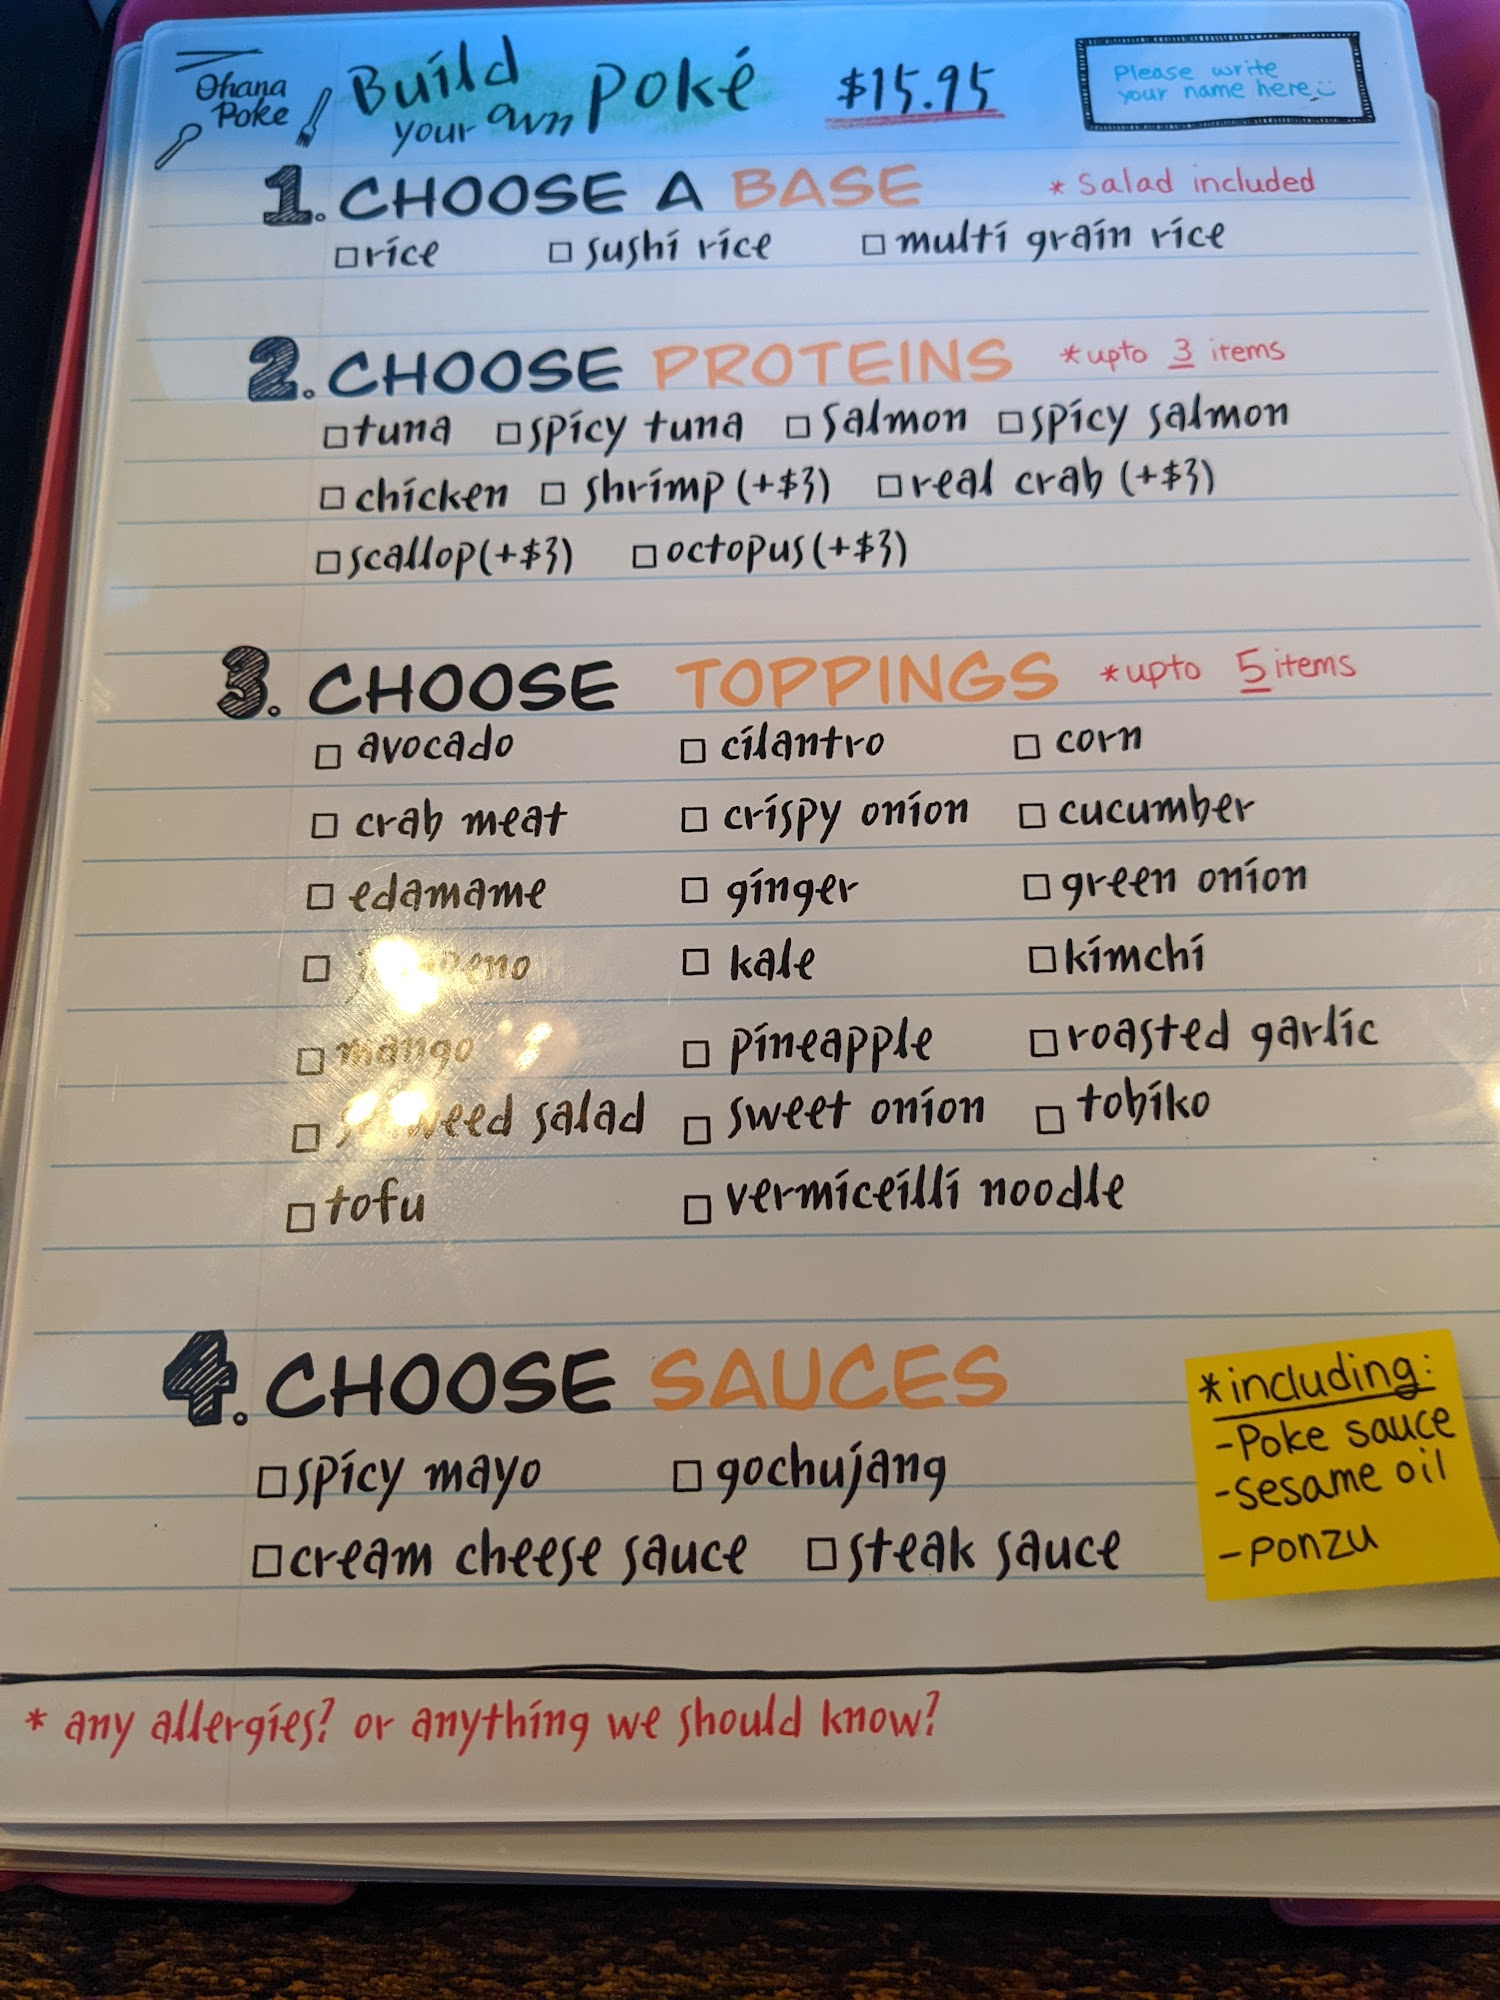 Ohana Poke
Build your own poké $15.95
Please write your name here
1. CHOOSE A BASE * Salad included
rice sushi rice multi grain rice
2. CHOOSE PROTEINS *upto 3 items
tuna spicy tuna salmon spicy salmon
chicken shrimp (+$3) real crab (+$3)
scallop (+$3) octopus (+$3)
3. CHOOSE TOPPINGS *upto 5 items
avocado cilantro corn
crab meat crispy onion cucumber
edamame ginger green onion
kale kimchi
mango pineapple roasted garlic
seaweed salad sweet onion tobiko
tofu vermiceilli noodle
4. CHOOSE SAUCES
spicy mayo gochujang
cream cheese sauce steak sauce
*including:
-Poke sauce
-sesame oil
-ponzu
* any allergies? or anything we should know?